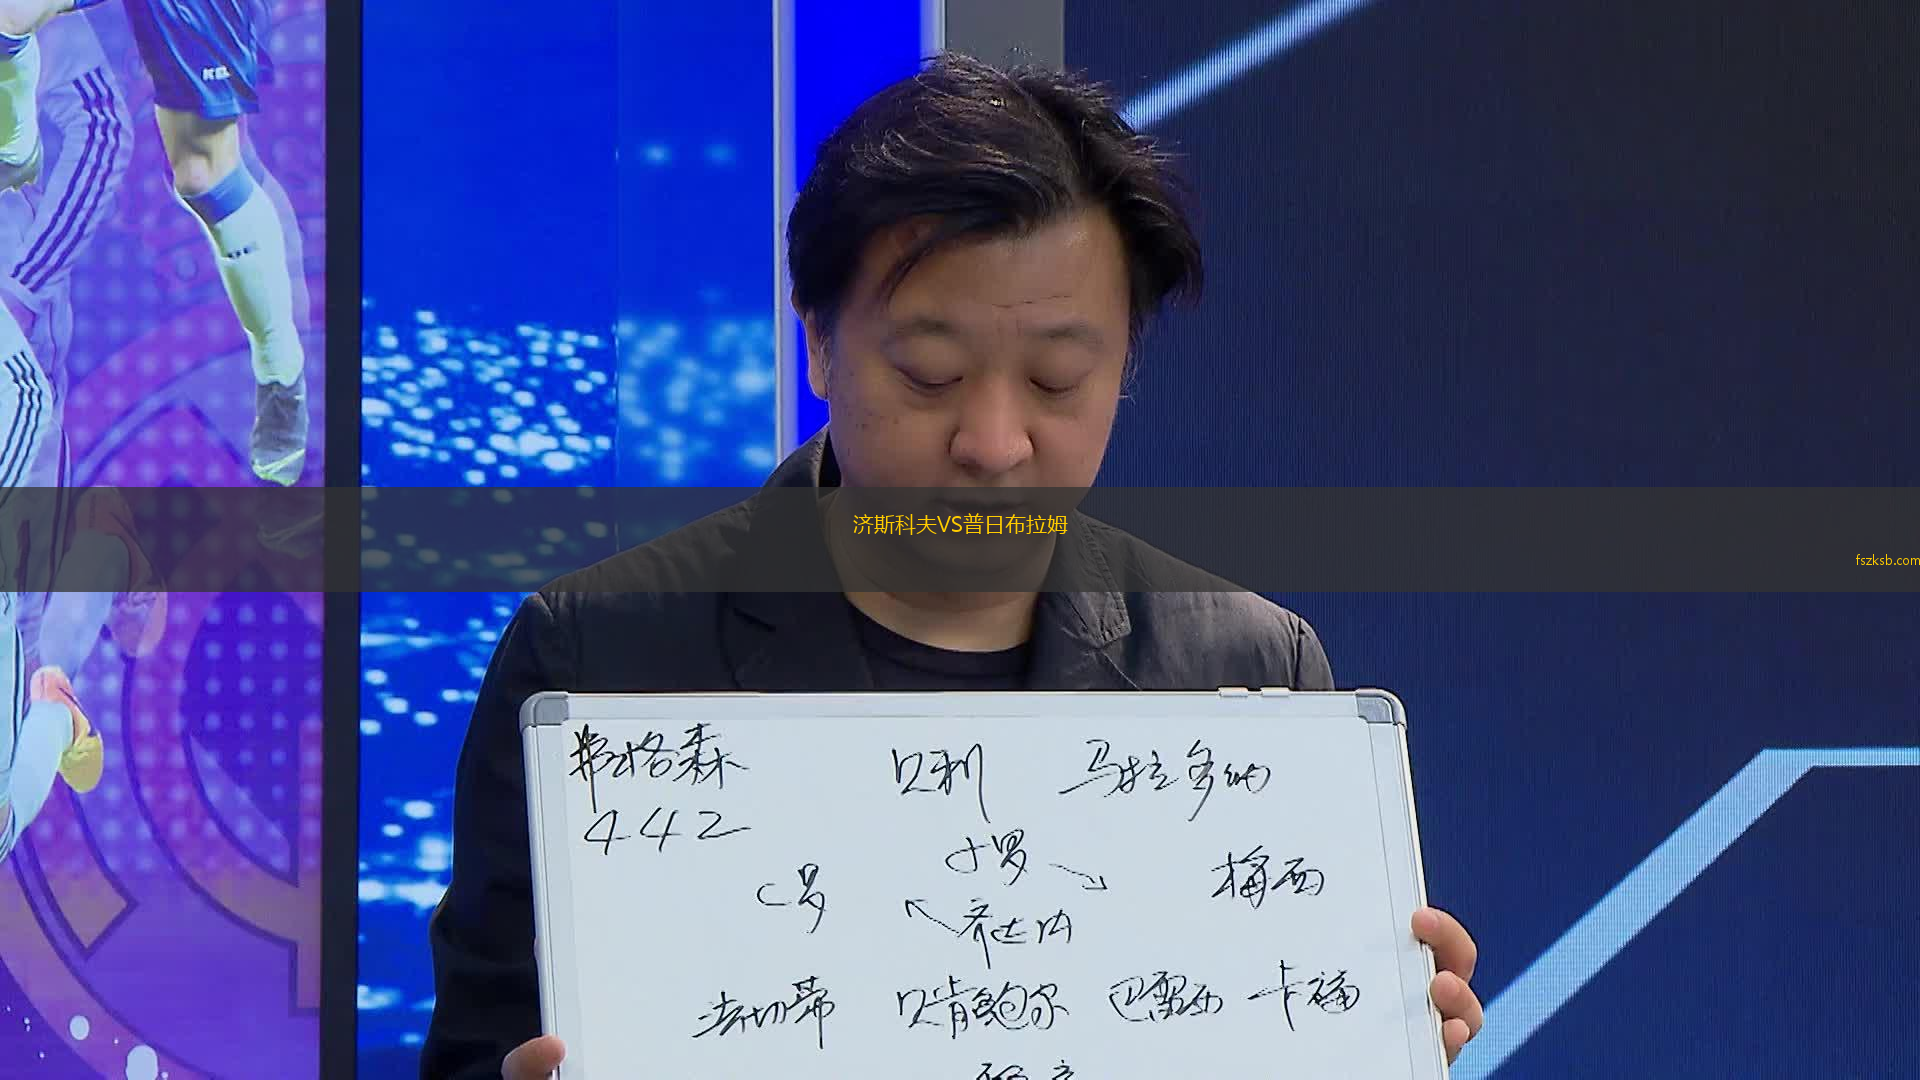 济斯科夫VS普日布拉姆
fszksb.com
弗格森 贝利 马拉多纳
442
小罗
C罗 梅西
齐达内
法切蒂 贝肯鲍尔 巴雷西 卡福